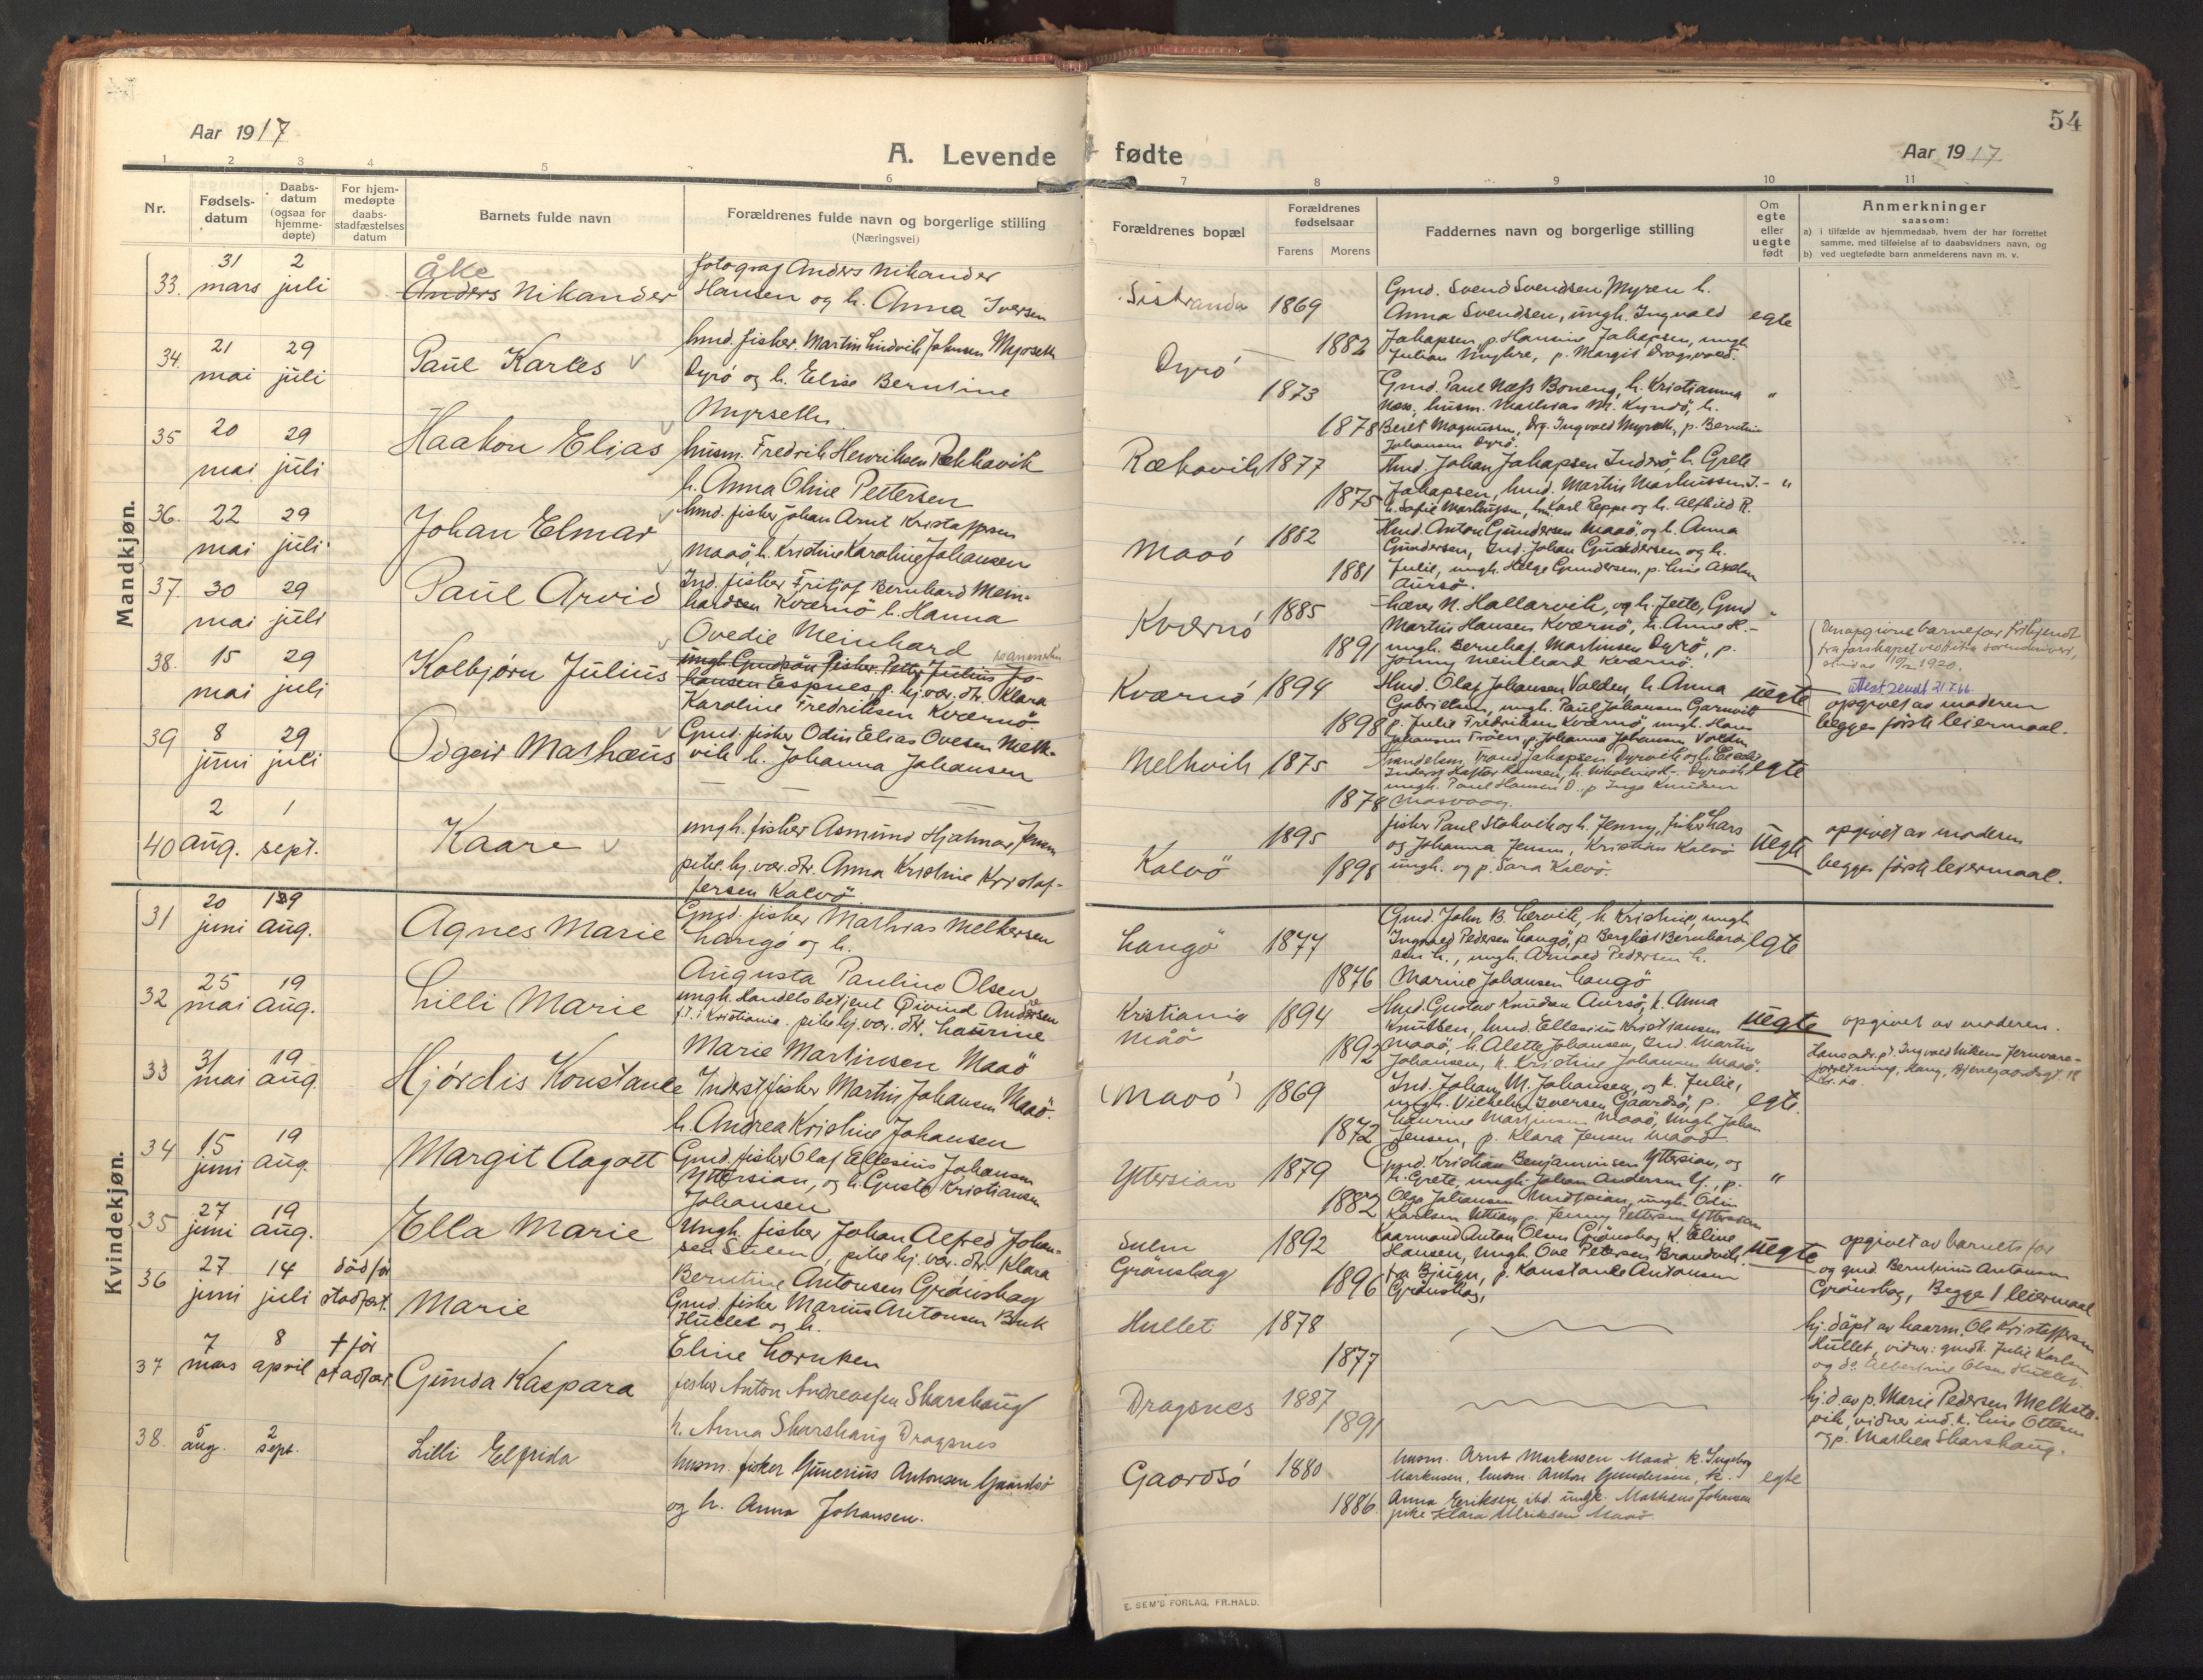 54
Aar 1917
A. Levende fødte
Aar 1917
1 2 3 4 5 6 7 8 9 10 11
Nr.
Fødsels-
datum
Daabs-
datum
(ogsaa for
hjemme-
døpte)
For hjem-
medøpte
daabs-
stadfæstelses
datum
Barnets fulde navn
Forældrenes fulde navn og borgerlige stilling
(Næringsvei)
Forældrenes bopæl
Forældrenes
fødselsaar
Farens Morens
Faddernes navn og borgerlige stilling
Om
egte
eller
uegte
født
Anmerkninger
saasom:
a) i tilfælde av hjemmedaab, hvem der har forrettet
samme, med tilføielse af to daabsvidners navn, og
b) ved uegtefødte barn anmelderens navn m. v.
Mandkjøn.
33. 31 mars 2 juli
Åke
Anders Nikander
fotograf Anders Nikander
Hansen og h. Anna Iversen
Sistranda 1869 1882
Gmd. Svend Svendsen Myren h.
Anna Svendsen, ungh. Ingvald
Jakapsen, p. Hanna Jakapsen, ungh
Julian Myhre, p. Margit Dragsvold.
egte
34. 21 mai 29 juli
Paul Karles
hmd. fisker Martin Ludvik Johnsen Myrseth
Dyrö og h. Elise Berntine
Myrseth
Dyrö 1873 1878
Gmd. Paul Næss Boneng, h. Kristianna
Næss, husm. Mathias M. Kyndö, h.
Beret Magnussen, Drg. Ingvald Myrseth, p. Berntine
Johansen Dyrö.
"
35 20 mai 29 juli
Haakon Elias
husm. Fredrik Henriksen Rækkavik
h. Anna Oline Pettersen
Rækavik 1877 1875
Hmd. Johan Jakapsen Inderö, h. Grete
Jakapsen, hmd. Martin Markussen I. - "
h. Sofie Markussen, hm. Karl Reppe og h. Alfhild R.
36. 22 mai 29 juli
Johan Elmar
hmd. fisker Johan Arnt Kristoffersen
Maaö h. Kristine Karoline Johansen
Maaö 1882 1881
Hmd. Anton Gundersen Maaö og h. Anna
Gundersen, Ind. Johan Gundersen og h.
Julie, ungh. Helge Gundersen, p. Line Axelsen
Aursö.
37. 30 mai 29 juli
Paul Arvid
Ind. fisker Fritjof Bernhard Mein-
hardsen Kværnö h. Hanna
Ovedie Meinhard
Kværnö 1885 1891
Lærer N. Hallarvik, og h. Jette, Gmd
Martin Hansen Kværnö, h. Anne H. -
ungh. Bernhof Martinsen Dyrö, p.
Jonny Meinhard Kværnö.
38. 15 mai 29 juli
Kolbjørn Julius
ungh. Gmdsön fisker Petter Julius Jo-
hansen Espnes, p. hj.vær. dtr. Klara
Karoline Fredriksen Kværnö
Kværnö 1894 1898
Hmd. Olaf Johansen Valden, h. Anna
Gabrielsen, ungh. Paul Johansen Garnvik
p. Julie Fredriksen Kværnö, ungh. Hans
Johansen Fröen, p. Johanna Johansen Valden
uegte
Den opgivne barnefar frikjendt
fra farskapet
1920.
Attest sendt 21.7.66.
opgivet av moderen
begges förste leiermaal.
39 8 juni 29 juli
Odgeir Mathæus
Gmd. fisker Odin Elias Ovesen Melk-
vik h. Johanna Johansen
Melkvik 1875 1878
egte
40 2 aug. 1 sept.
Kaare
ungh. fisker Asmund Hjalmar Jensen
pike hj. vær. dtr. Anna Kristine Kristof-
fersen Kalvö
Kalvö 1895 1898
fisker Paul Stokvik og h. Jenny, fisker Lars
og Johanna Jensen, Kristian Kalvö
ungh. og p. Sara Kalvö.
uegte
opgivet av moderen
begges förste leiermaal.
Kvindekjøn.
31 20 juni 19 aug.
Agnes Marie
Gmd. fisker Mathias Melkersen
Langö og h.
Augusta Pauline Olsen
Langö 1877 1876
Gmd. John B. Lervik, h Kristine, ungh
Ingvald Pedersen Langö, p Bergliot Bernhard-
sen L., ungh. Arnold Pedersen L.
Marine Johansen Langö
egte
32 25 mai 19 aug.
Lilli Marie
ungh. Handelsbetjent Øivind Andersen
f.t. i Kristiania. pike hj. vær. dtr. Laurine
Marie Martinsen Maaö
Kristiania
Maö 1894 1892
Hmd. Gustav Knudsen Aursö, k. Anna
Knutsen, hmd. Ellesius Kristiansen
Maaö, h. Alette Johansen, Ind. Martin
Johansen, k. Kristine Johansen Maaö.
uegte
opgivet av moderen.
Hans adr. pt. Ingvald Jernvare-
forretning,
33 31 mai 19 aug.
Hjördis Konstance
Inderst fisker Martin Johansen Maaö.
h. Andrea Kristine Johansen
(Maaö) 1869 1872
Ind. Johan M. Johansen, og k. Julie,
ungh. Vilhelm Iversen Gaardsö, p.
Laurine Martinsen Maaö, Ungh. Johan
Jensen, p. Klara Jensen Maaö
egte.
34 15 juni 19 aug.
Margit Aagott
Gmd. fisker Olaf Ellesius Johansen
Yttersian, og h. Gusta Kristiansen
Johansen
Yttersian 1879 1882
Gmd. Kristian Benjaminsen Yttersian, og
h. Grete, ungh. Johan Andersen Y., p.
Olga Johansen Sundsian, ungh. Odin
Karlsen Yttersian p. Jenny Pettersen Yttersian
"
35 27 juni 19 aug.
Ella Marie
Ungh. fisker Johan Alfred Johan-
sen Sulen, pike hj. vær. dtr. Klara
Berntine Antonsen Grönshag
Sulen
Grönshag 1892 1896
Kaarmand Anton Olsen Grönshag, k. Eline
Hansen, ungh. Ove Petersen Brandvik
fra Bjugn, p. Konstance Antonsen
Grönshag,
uegte
opgivet av barnets far
og gmd. Berntinus Antonsen
Grönshag, Begge 1 leiermaal
36 27 juni 14 juli död før stadfæst.
Marie
Gmd. fisker Marius Antonsen Buk
Hullet og h.
Eline Lornken
Hullet 1878 1877
hj. döpt av haarm. Ole Kristoffersen
Hullet, vidner: gmdk. Julie Karlsen
og do Albertine Olsen Hullet.
37 7 mars 8 april † för stadfæst
Gunda Kaspara
fisker Anton Andreassen Skarshaug
h. Anna Skarshaug Dragsnes
Dragsnes 1887 1891
hj. d. av p. Marie Pedersen Melksta-
vik, vidner ind. k. Line Ottesen
og p. Mathea Skarshaug.
38. 5 aug. 2 sept.
Lilli Elfrida
husm. fisker Gunerius Antonsen Gaardsö
og h. Anna Johansen.
Gaardsö 1880 1886
husm. Arnt Markusen Maaö, k. Ingeborg
Markusen, husm. Anton Gundersen, k.
Anna Eriksen, ind. ungk. Mathæus Johansen
pike Klara Ulriksen Maaö
egte
E. SEM'S FORLAG, FR.HALD.